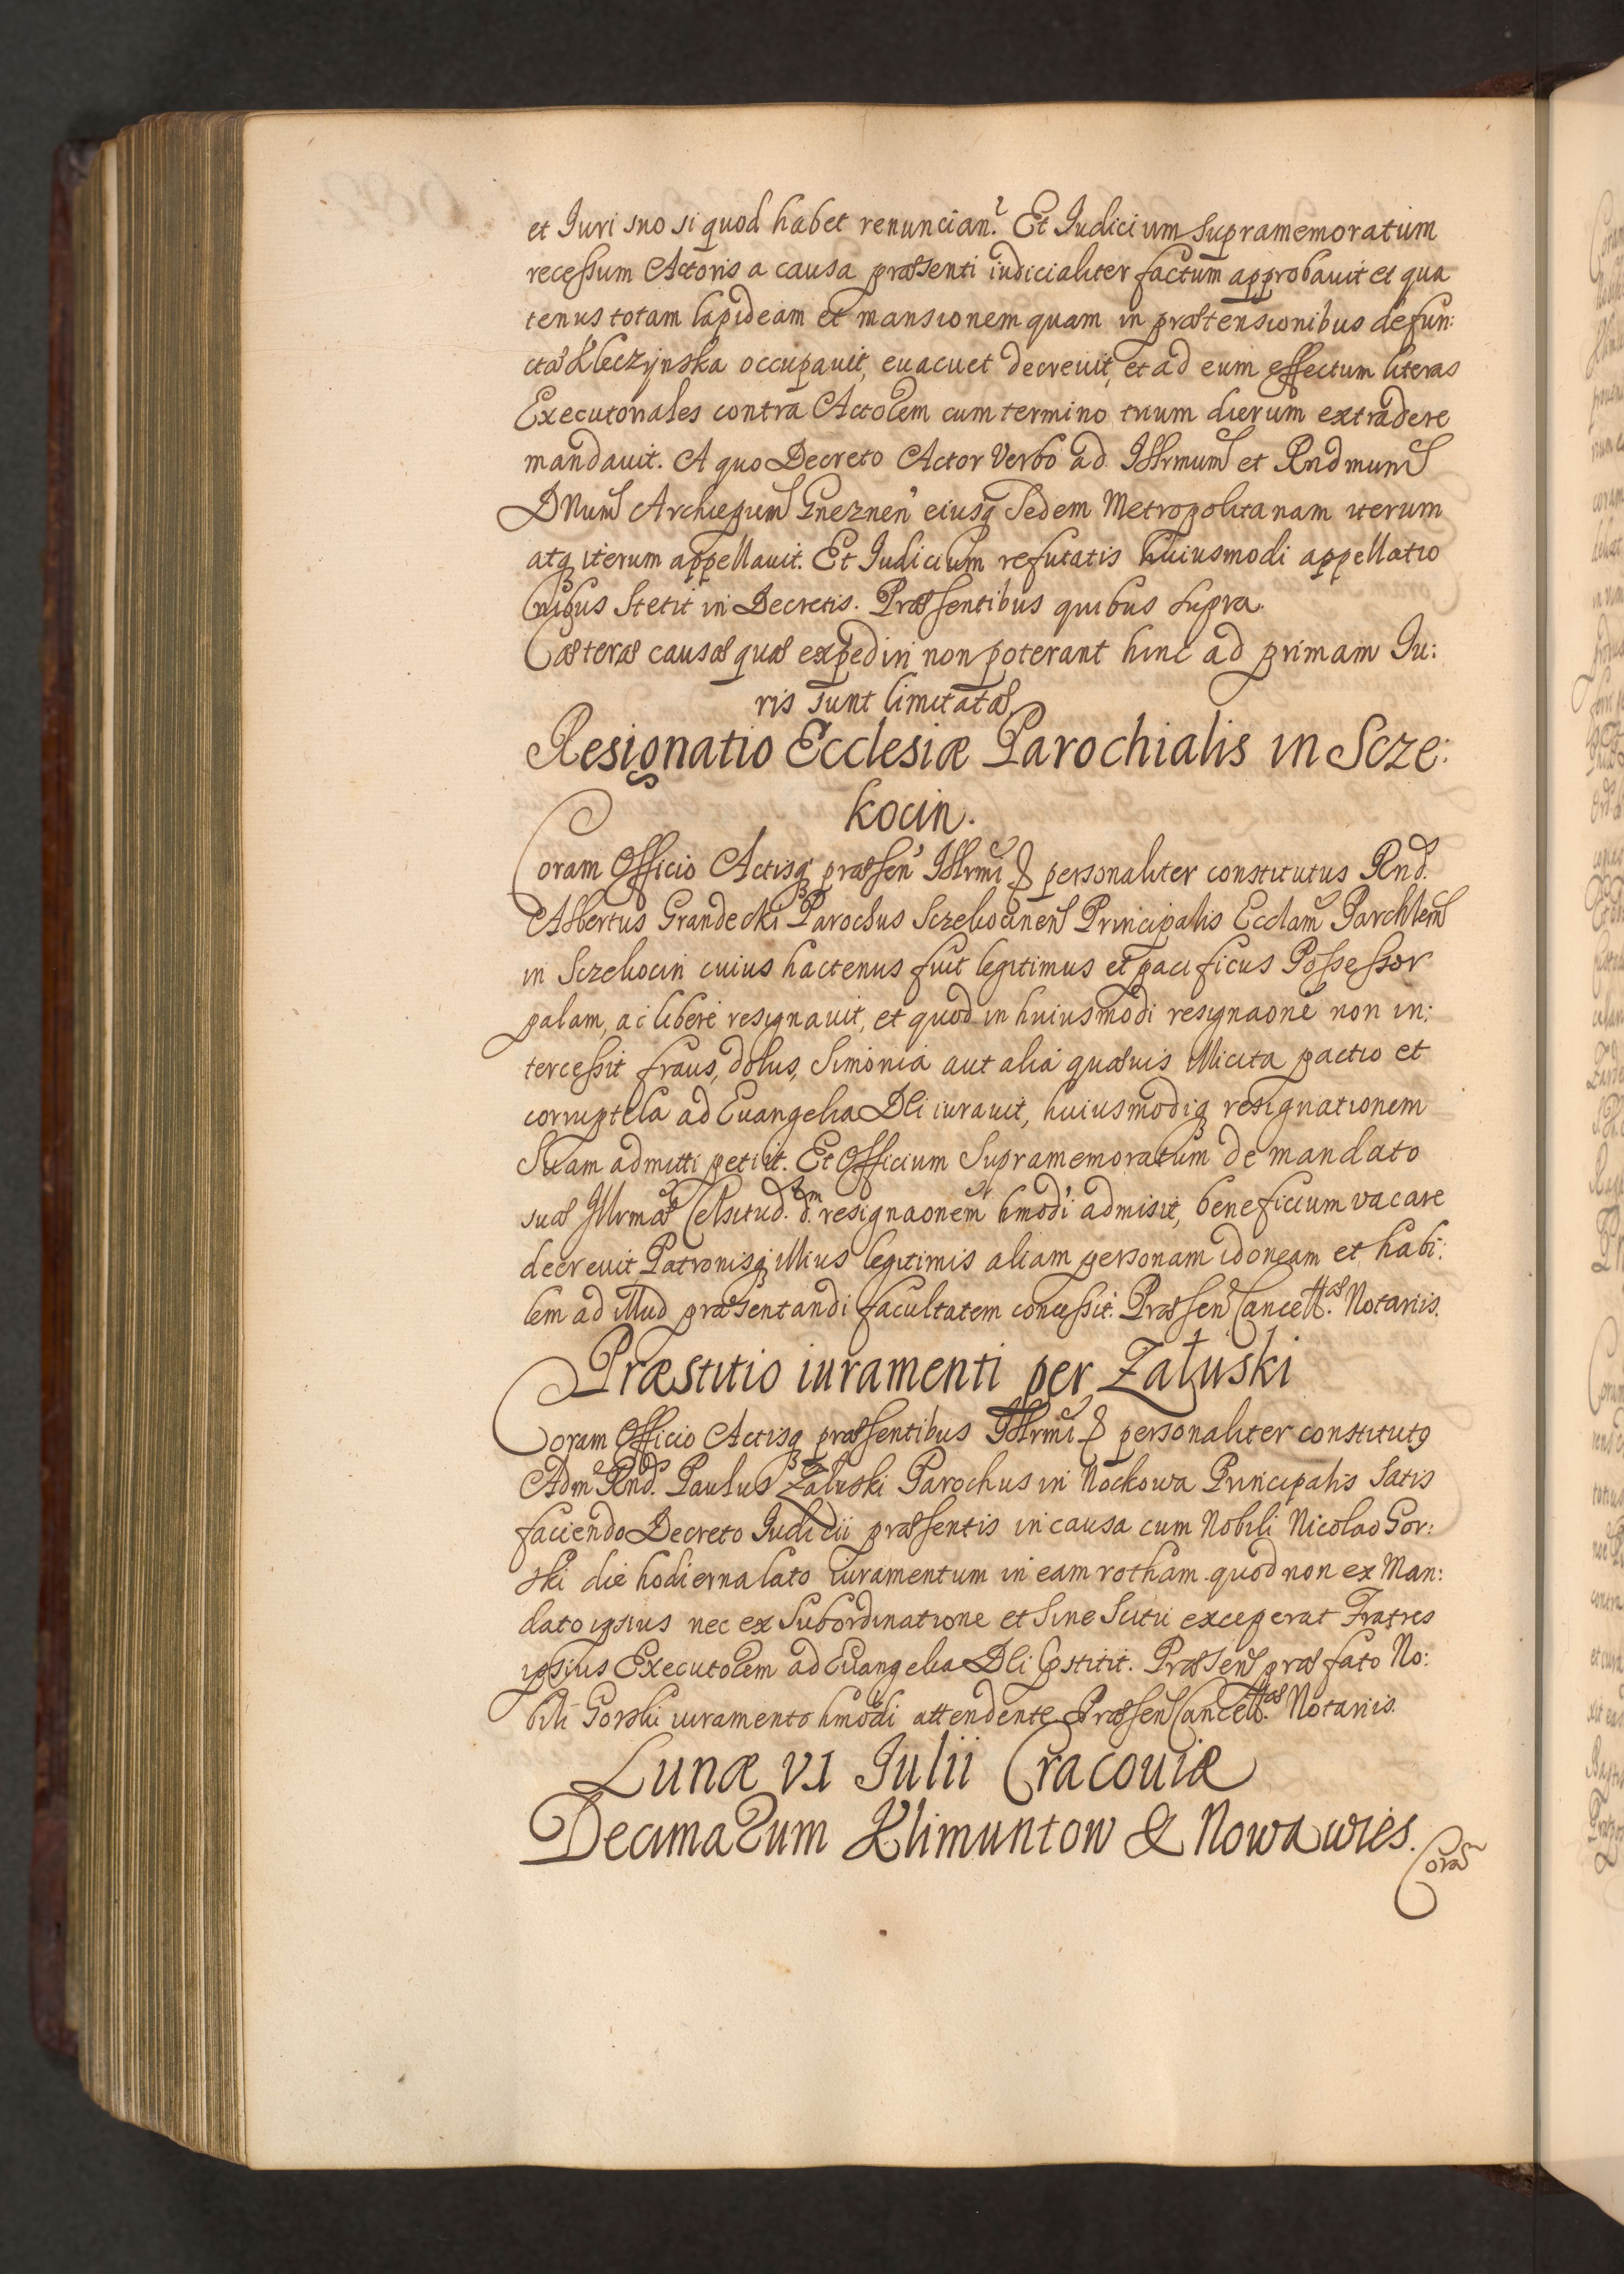 et Iuri suo si quod habet renuncian? Et Iudicium supramemoratum
recessum Actoris a causa præsenti iudicialiter factum approbauit et qua
tenus totam lapideam et mansionem quam in prætensionibus defun:
ctæ Kleczynska occupauit, euacuet decreuit, et ad eum effectum literas
Executoriales contra Actorem cum termino trium dierum extradere
mandauit. A quo Decreto Actor Verbo ad Illrmum et Rndmum
DNum Archiepum Gneznen' eiusq Sedem Metropolitanam iterum
atq iterum appellauit. Et Iudicium refutatis huiusmodi appellatio
nibus Stetit in Decretis. Præsentibus quibus supra.
Cæteræ causæ quæ expediri non poterant hinc ad primam Iu:
ris sunt limitatæ.
Resignatio Ecclesiæ Parochialis in Scze:
kocin.
Coram Officio Actisq præsen' Illrmi & personaliter constitutus Rnd.
Albertus Grandecki Parochus Sczekocinen Principalis Ecclam Parchlem
in Sczekocin cuius hactenus fuit legitimus et pacificus Possessor
palam, ac libere resignauit, et quod in huiusmodi resignaone non in:
tercessit fraus, dolus, Simonia aut alia quævis illicita pactio et
corruptela ad Euangelia DEi iurauit, huiusmodiq resignationem
Suam admitti petiit. Et Officium Supramemoratum de mandato
suæ Illrmæ Celsitud. d.tm resignaonem hmodi admisit, beneficium vacare
decreuit Patronisq illius legitimis aliam personam idoneam et habi:
lem ad illud præsentandi facultatem concessit. Præsen Cancell.æ Notariis.
Præstitio iuramenti per Załuski
Coram Officio Actisq præsentibus Illrmi & personaliter constitut9
Adm Rnd. Paulus Załuski Parochus in Nockowa Principalis Satis
faciendo Decreto Iudicii præsentis in causa cum Nobili Nicolao Gor:
ski die hodierna lato iuramentum in eam rotham quod non ex Man:
dato ipsius nec ex Subordinatione et Sine Scitu exceperat Fratres
ipsius Executorem ad Euangelia DEi pstitit. Præsen præfato No:
bili Gorski iuramento hmodi attendente Præsen Cancell.æ Notariis.
Lunæ VI Iulii Cracouiæ
Decimarum Klimuntow & Nowawies.
Coram